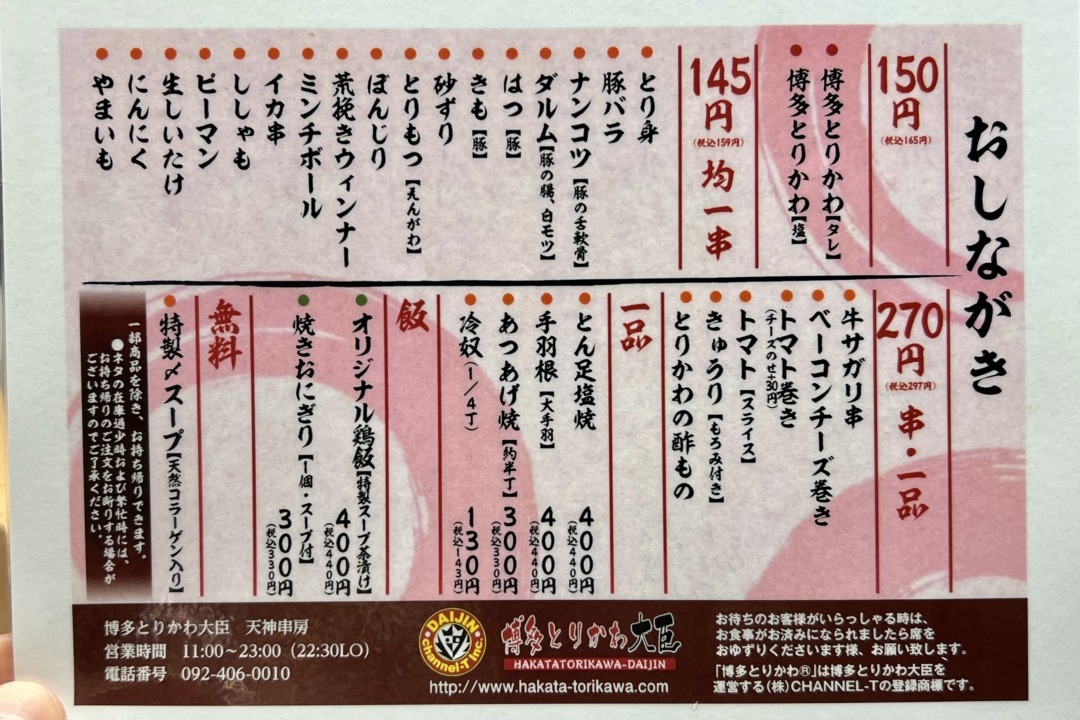 おしながき
150円
(税込165円)
博多とりかわ【タレ】
博多とりかわ【塩】
145円
(税込159円)
均一串
とり身
豚バラ
ナンコツ【豚の舌軟骨】
ダルム【豚の腸、白モツ】
はつ【豚】
きも【豚】
砂ずり
とりもつ【えんがわ】
ぼんじり
荒挽きウィンナー
ミンチボール
イカ串
ししゃも
ピーマン
生しいたけ
にんにく
やまいも
270円
(税込297円)
串・一品
牛サガリ串
ベーコンチーズ巻き
トマト巻き
(チーズのせ+30円)
トマト【スライス】
きゅうり【もろみ付き】
とりかわの酢もの
一品
とん足塩焼 400円
(税込440円)
手羽根【大手羽】 400円
(税込440円)
あつあげ焼【約半丁】 300円
(税込330円)
冷奴(1/4丁) 130円
(税込143円)
飯
オリジナル鶏飯【特製スープ茶漬け】 400円
(税込440円)
焼きおにぎり【1個・スープ付】 300円
(税込330円)
無料
特製〆スープ【天然コラーゲン入り】
一部商品を除き、お持ち帰りできます。
●ネタの在庫過少時および繁忙時には、
お持ち帰りのご注文をお断りする場合が
ございますのでご了承ください。
博多とりかわ大臣 天神串房
営業時間 11:00~23:00(22:30LO)
電話番号 092-406-0010
DAIJIN
Channel-T Inc.
博多とりかわ大臣
HAKATATORIKAWA-DAIJIN
http://www.hakata-torikawa.com
お待ちのお客様がいらっしゃる時は、
お食事がお済みになられましたら席を
おゆずりくださいます様、お願い致します。
「博多とりかわ®」は博多とりかわ大臣を
運営する(株)CHANNEL-Tの登録商標です。